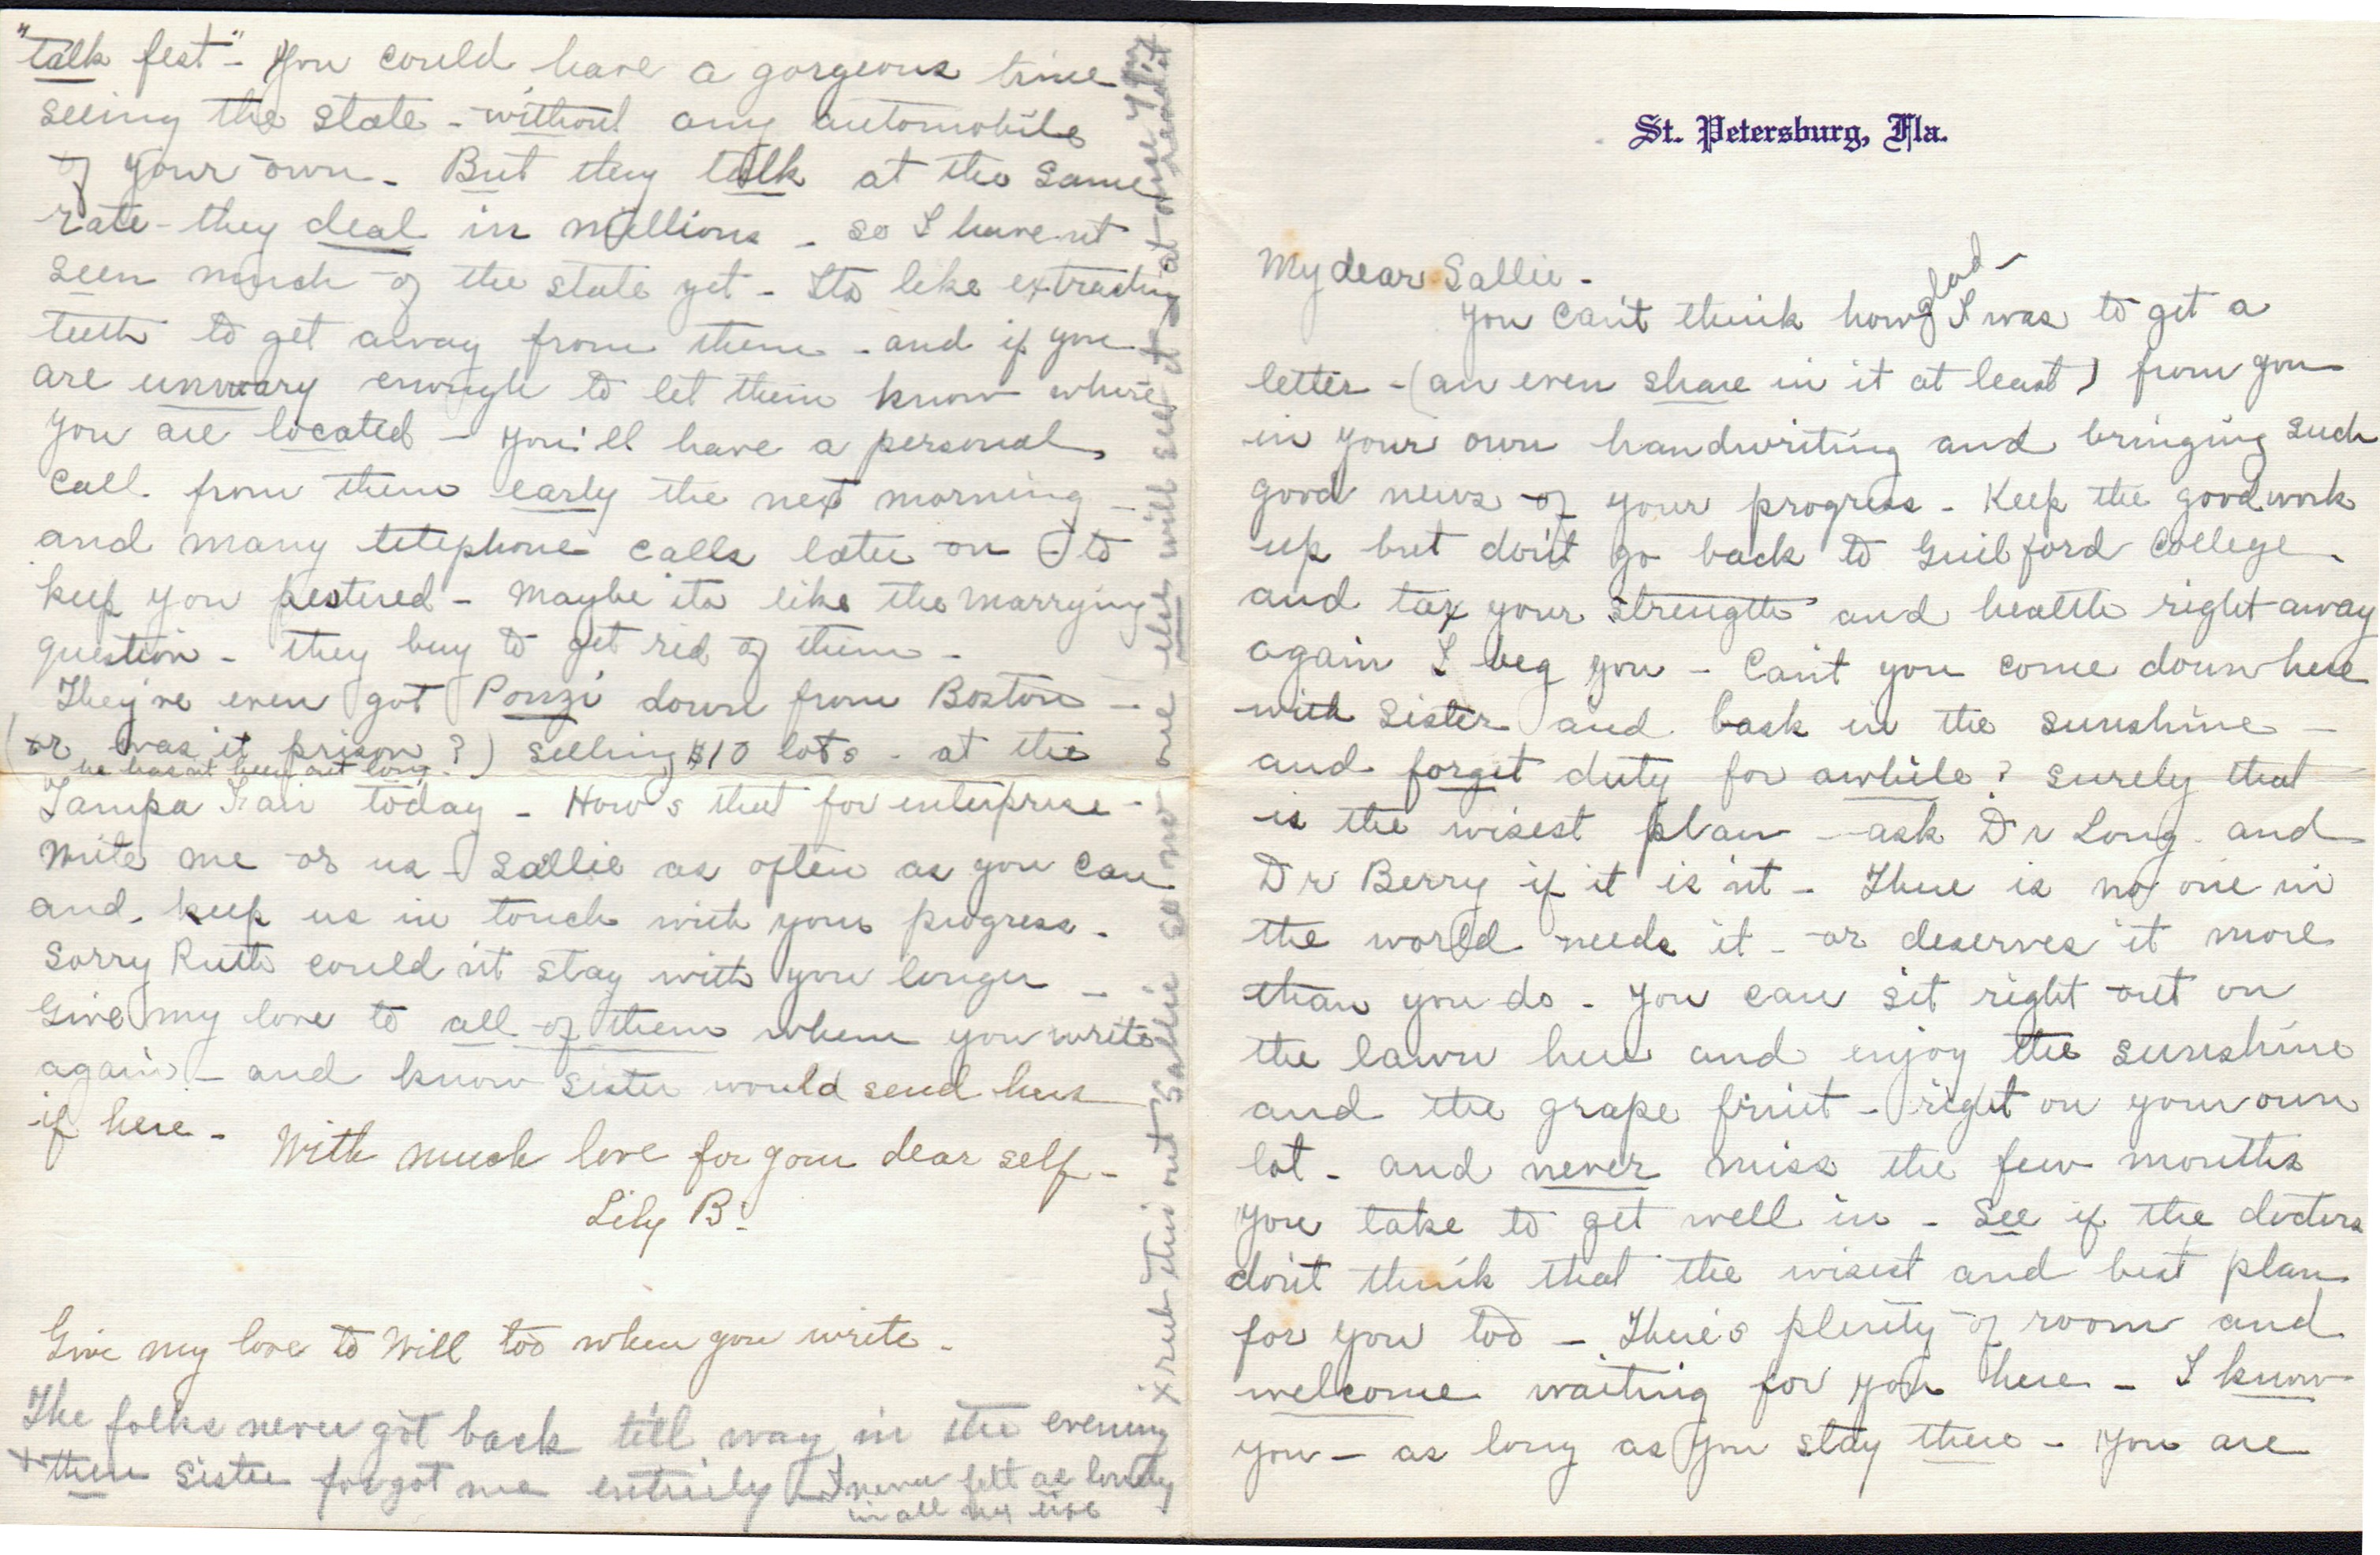 St. Petersburg, Fla.
My dear Sallie -
You can't think how glad I was to get a
letter - (an even share in it at least) from you
in your own handwriting and bringing such
good news of your progress - Keep the good work
up but don't go back to Guilford College
and tax your strength and health right away
again I beg you - Can't you come down here
with Sister and bask in the sunshine -
and forget duty for awhile? surely that
is the wisest plan - ask Dr Long and
Dr Berry if it is'nt - There is no one in
the world needs it - or deserves it more
than you do - You can sit right out on
the lawn here and enjoy the sunshine
and the grape fruit - right on your own
lot - and never miss the few months
you take to get well in - See if the doctors
don't think that the wisest and best plan
for you too - There's plenty of room and
welcome waiting for you here - I know
you - as long as you stay there - you are
"talk fest" - You could have a gorgeous time
seeing the state - without any automobile
of your own - But they talk at the same
rate - they deal in millions - so I have'nt
seen much of the state yet - Its like extracting
teeth to get away from them - and if you
are unwary enough to let them know where
you are located - you'll have a personal
call from them early the next morning -
and many telephone calls later on - to
keep you pestered - Maybe its like the marrying
question - they buy to get rid of them -
They've even got Ponzi down from Boston -
(or was it prison?) selling $10 lots - at the
he has'nt been out long -
Tampa Fair today - How's that for enterprise -
Write me or us - Sallie as often as you can
and keep us in touch with your progress -
Sorry Ruth could'nt stay with you longer -
Give my love to all of them when you write
again - and know Sister would send hers
if here - With much love for your dear self -
Lily B.
Give my love to Will too when you write -
The folks never got back till way in the evening
+ then Sister forgot me entirely - I never felt as lonely
in all my life
x rub this out Sallie so no one else will see it - at once